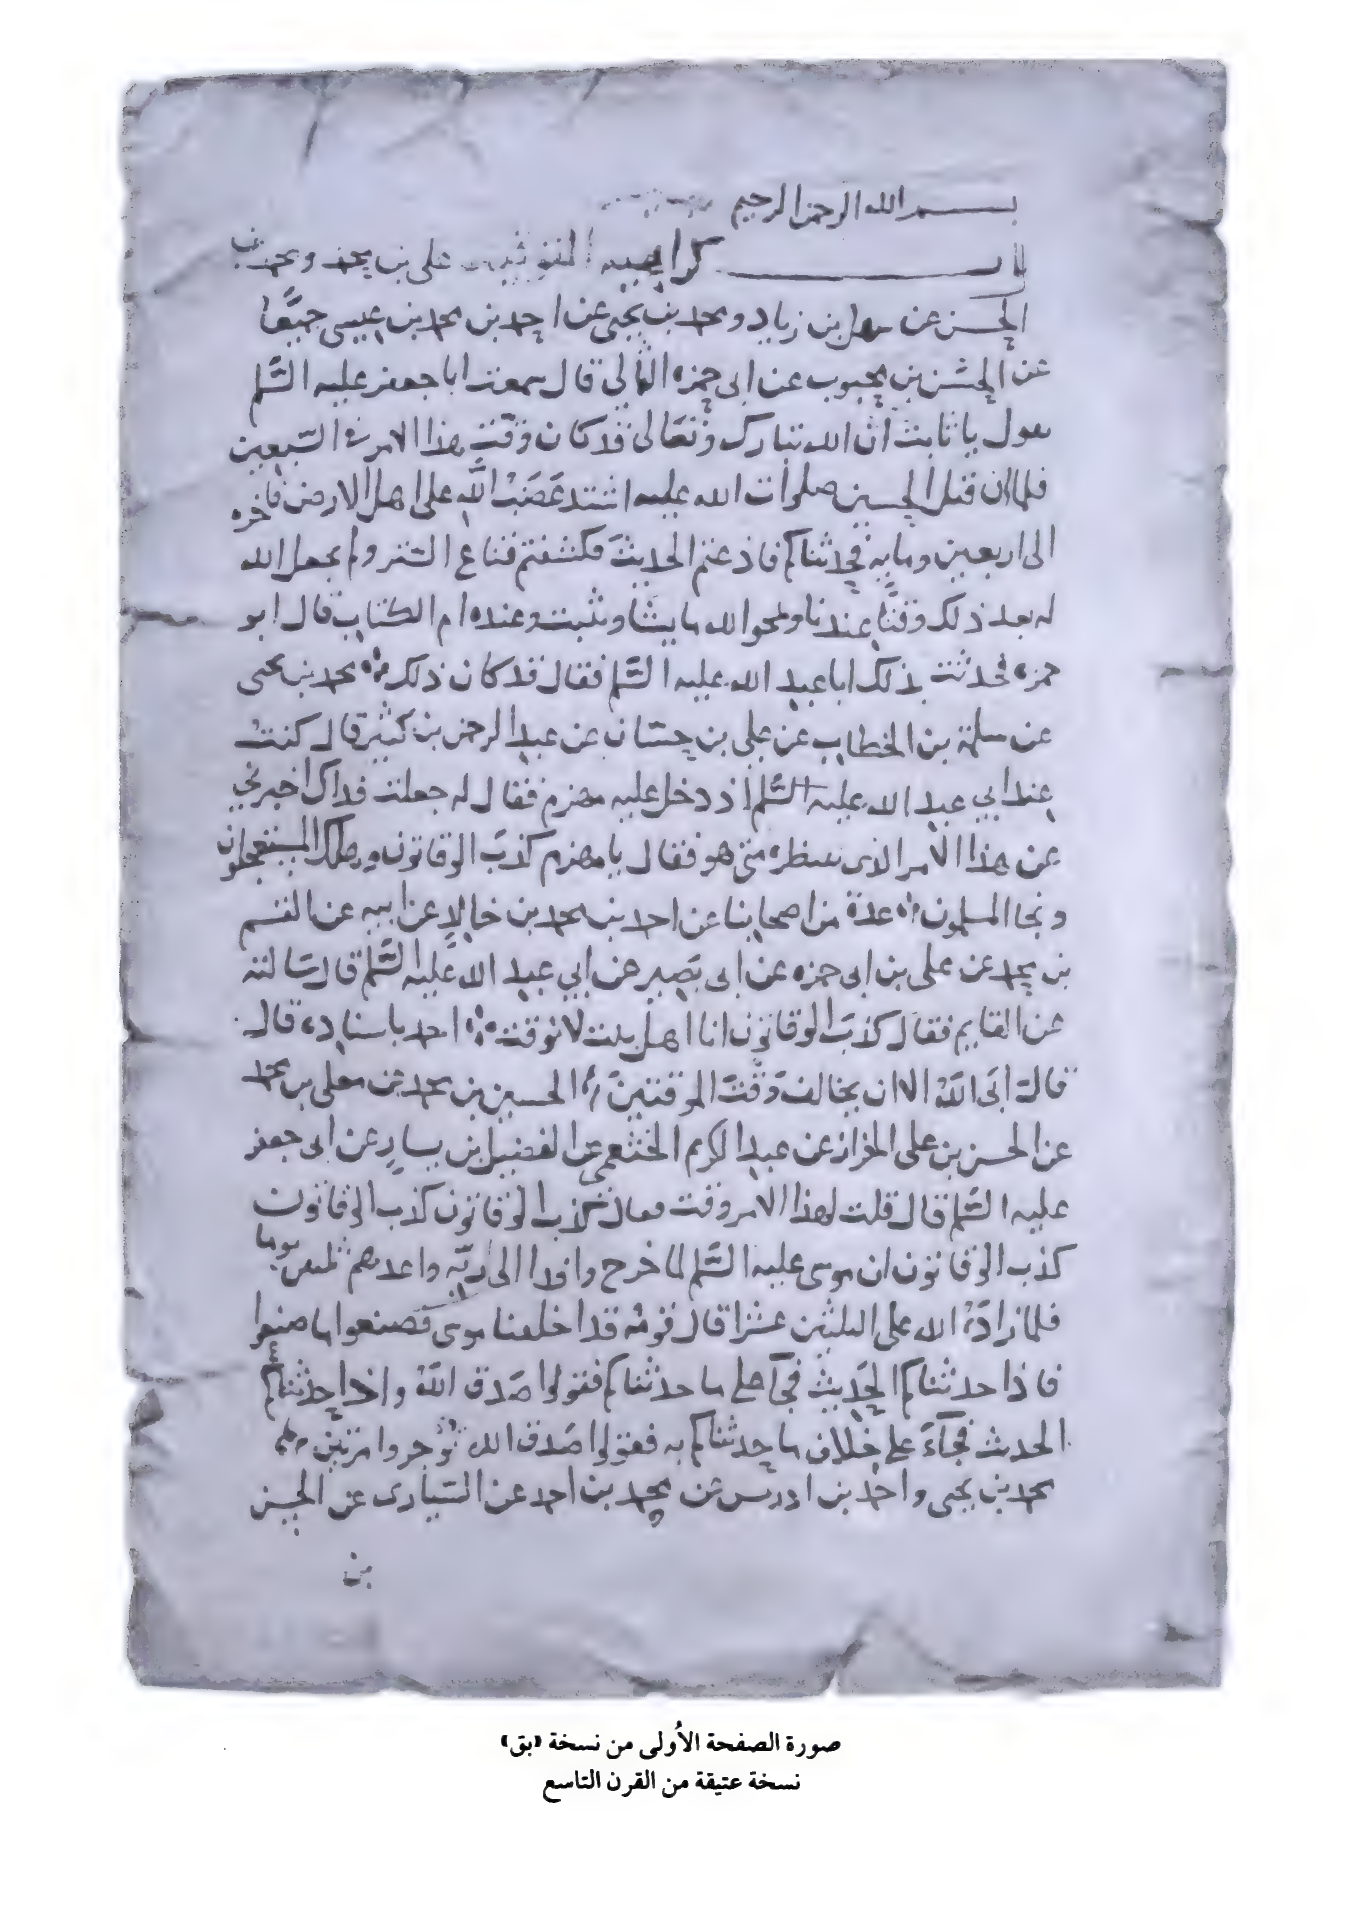 بسم الله الرحمن الرحيم
باب كراهية التوقيت علي بن محمد ومحمد بن
الحسن عن سهل بن زياد ومحمد بن يحيى عن احمد بن محمد بن عيسى جميعًا
عن الحسن بن محبوب عن ابى حمزه الثمالي قال سمعت ابا جعفر عليه السَّلم
يقول يا ثابت انّ الله تبارك وتعالى قد كان وقّت هذا الامر في السّبعين
فلما ان قتل الحسين صلوات الله عليه اشتد غضب اللَّه على اهل الارض فاخره
الى اربعين ومايه فحدثناكم فاذعتم الحديث فكشفتم قناع الستر ولم يجعل الله
له بعد ذلك وقتًا عندنا ويمحوا لله ما يشا ويثبت وعنده ام الكتاب قال ابو
حمزه فحدثت بذلك ابا عبد الله عليه السَّلم فقال قد كان ذلك محمد بن يحيى
عن سلمة بن الخطاب عن علي بن حسّان عن عبد الرحمن بن كثير قال كنت
عند ابي عبد الله عليه السَّلم اذ دخل عليه مهزم فقال له جعلت فداك اخبرني
عن هذا الامر الذى ننتظره متى هو فقال يا مهزم كذب الوقاتون وهلك المستعجلون
ونجا المسلمون عدة من اصحابنا عن احمد بن محمد بن خالد عن ابيه عن القسم
بن محمد عن على بن ابى حمزه عن ابى بصير عن ابي عبد الله عليه السَّلم قال سالته
عن القايم فقال كذب الوقاتون انا اهل بيت لا نوقت احمد باسناده قال
قال ابى اللَّه الا ان يخالف وقت الموقتين الحسين بن محمد عن معلى بن محمد
عن الحسن بن على الخزاز عن عبد الكريم الخثعمى عن الفضيل بن يسار عن ابى جعفر
عليه السَّلم قال قلت لهذا الامر وقت فقال كذب الوقاتون كذب الوقاتون
كذب الوقاتون ان موسى عليه السَّلم لما خرج وافدا الى ربّه واعدهم ثلثين يوما
فلما زاده الله على الثلثين عشرا قال قومه قد اخلفنا موسى فصنعوا ما صنعوا
فاذا حدثناكم الحديث فجآ على ما حدثناكم فقولوا صدق اللَّه واذا حدثناكم
الحديث فجآء على خلاف ما حدثناكم به فقولوا صدق الله تؤجروا مرتين
محمد بن يحيى واحمد بن ادريس عن محمد بن احمد عن السّيارى عن الحسن
بن
صورة الصفحة الأولى من نسخة «بق»
نسخة عتيقة من القرن التاسع